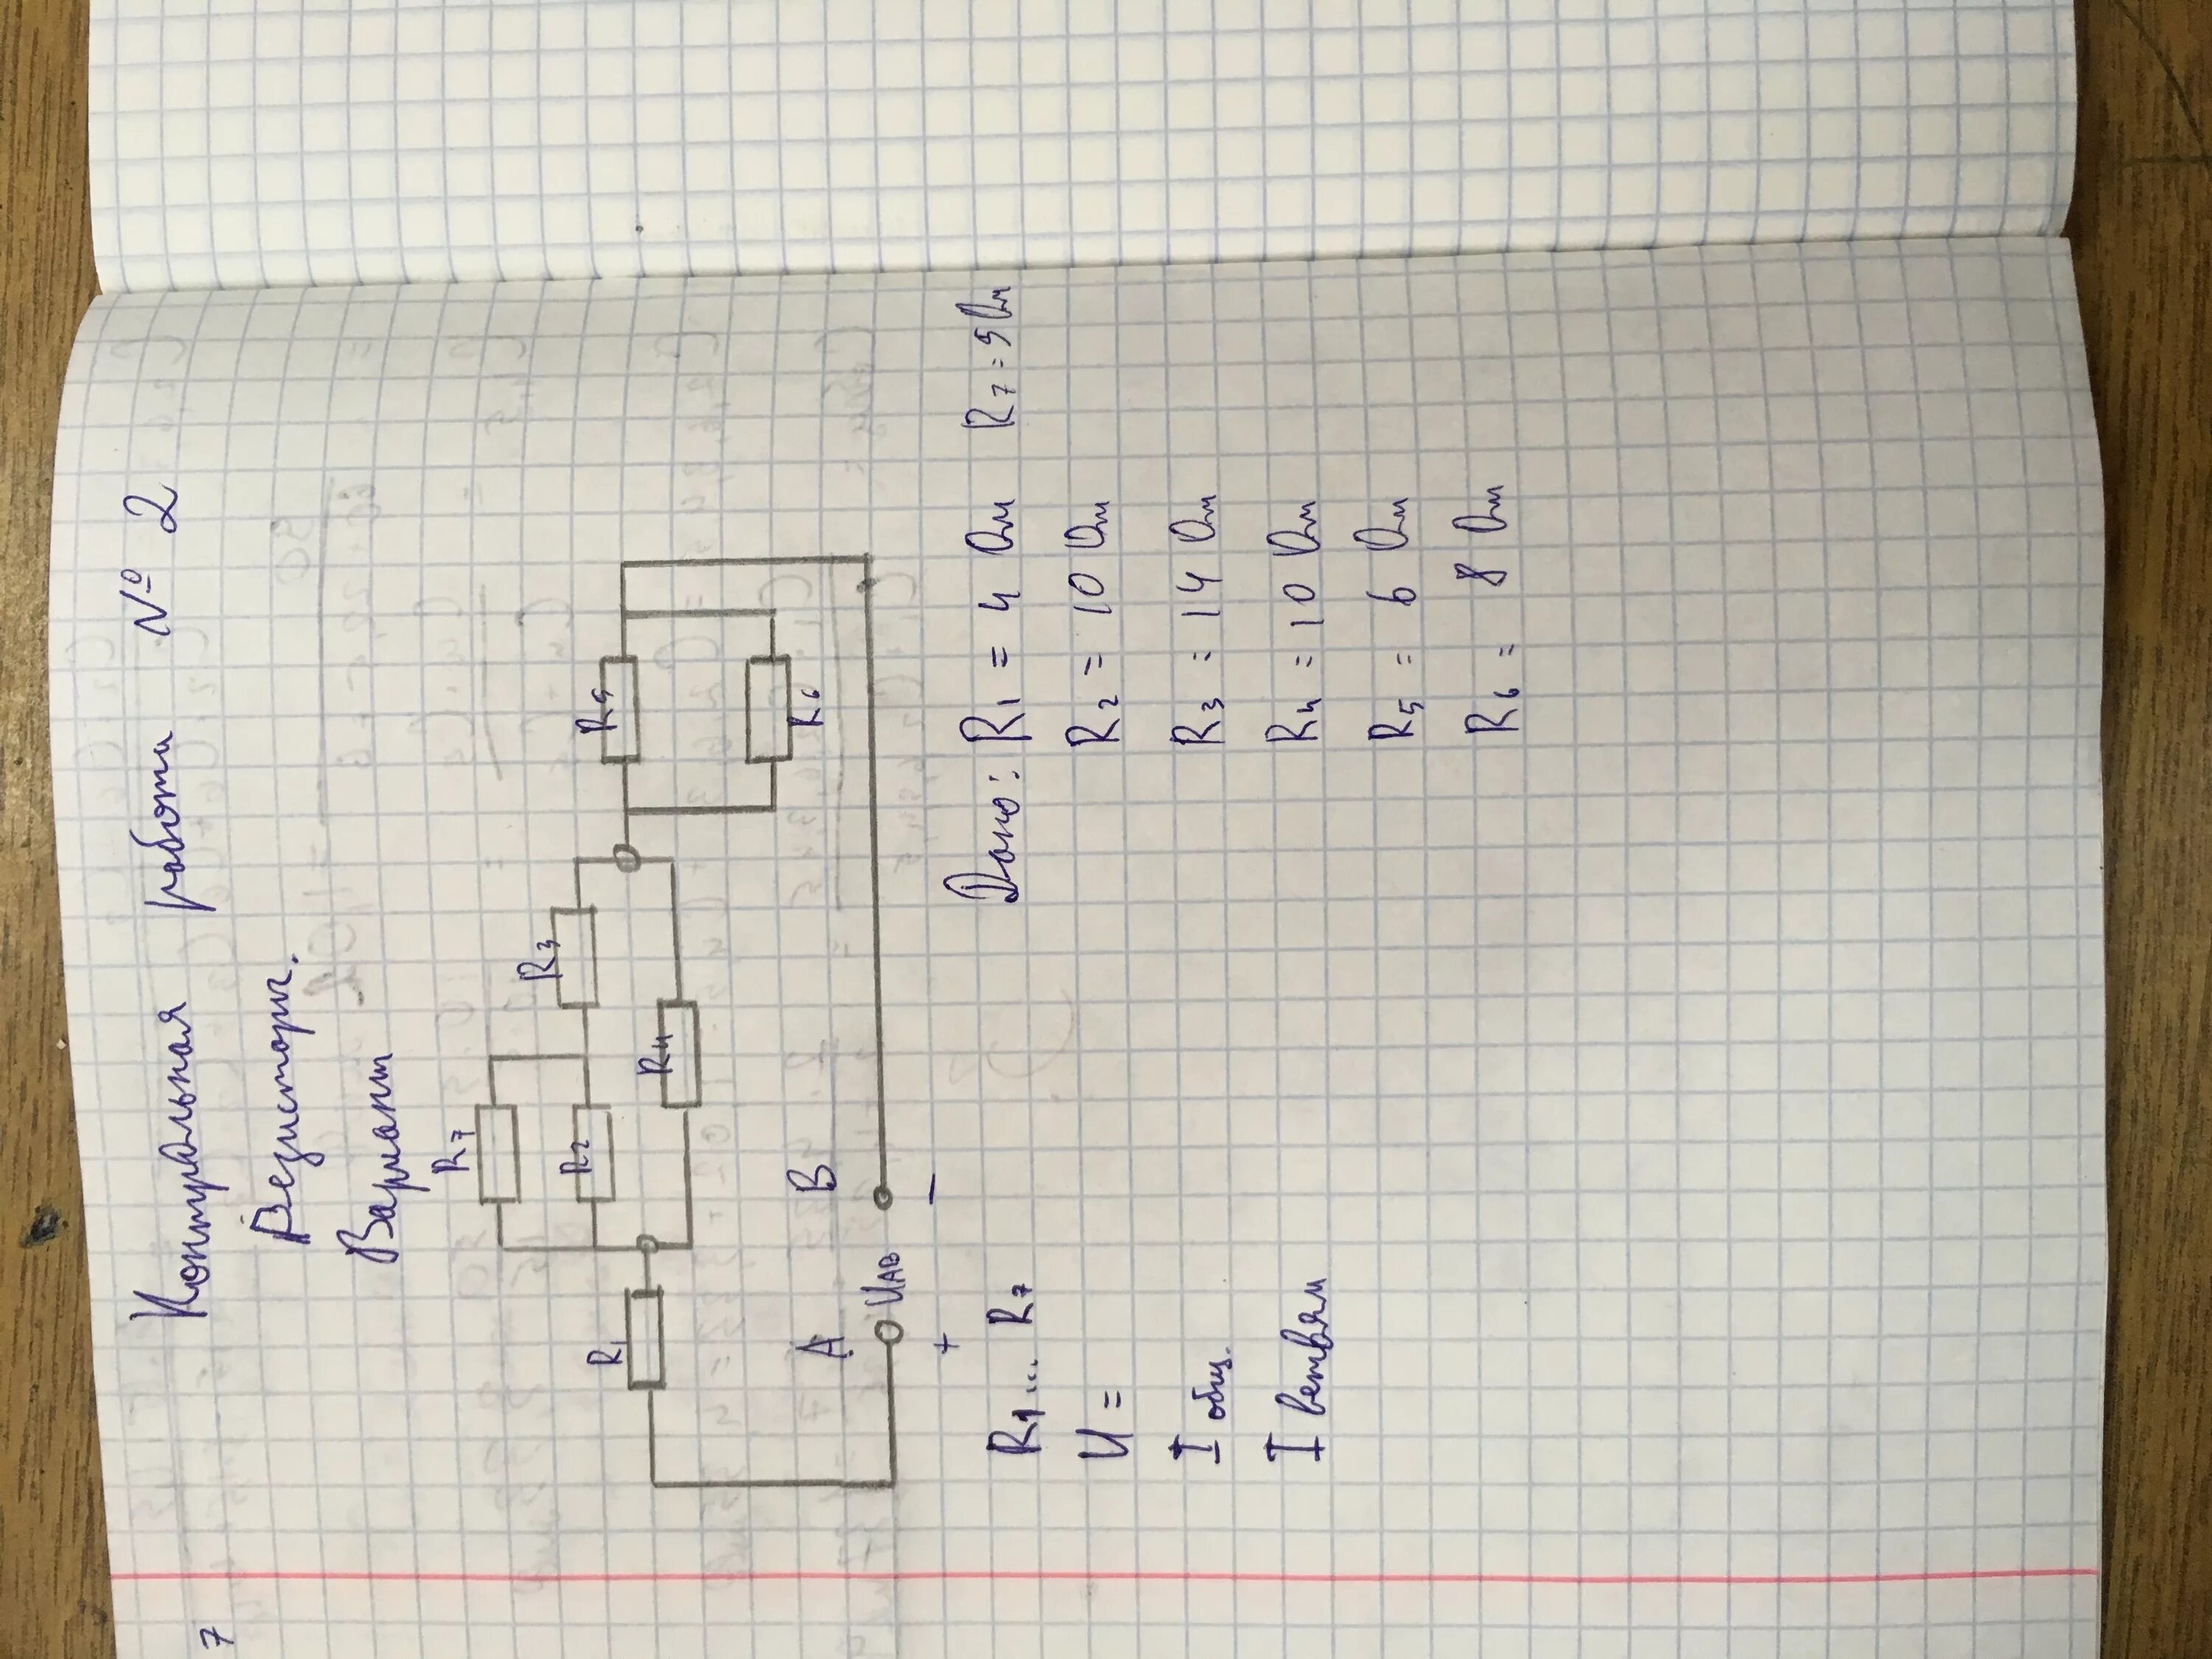 7
Контрольная работа № 2
Резисторы.
Вариант
R7
R3
R5
R1
R2
R4
R6
A B
UAB
+ −
R1... R7
U =
I общ.
I ветвям
Дано: R1 = 4 Ом R7 = 5 Ом
R2 = 10 Ом
R3 = 14 Ом
R4 = 10 Ом
R5 = 6 Ом
R6 = 8 Ом